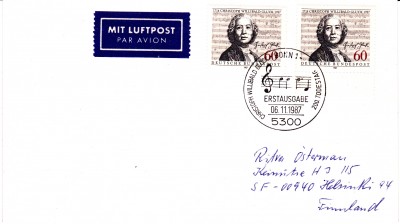 MIT LUFTPOST
PAR AVION
CHRISTOPH WILLIBALD GLUCK
60
DEUTSCHE BUNDESPOST
60
DEUTSCHE BUNDESPOST
BONN 1
CHRISTOPH WILLIBALD
200. TODESTAG
ERSTAUSGABE
06.11.1987
5300
Ritva Österman
H 115
SF-00940 Helsinki 94
Finnland